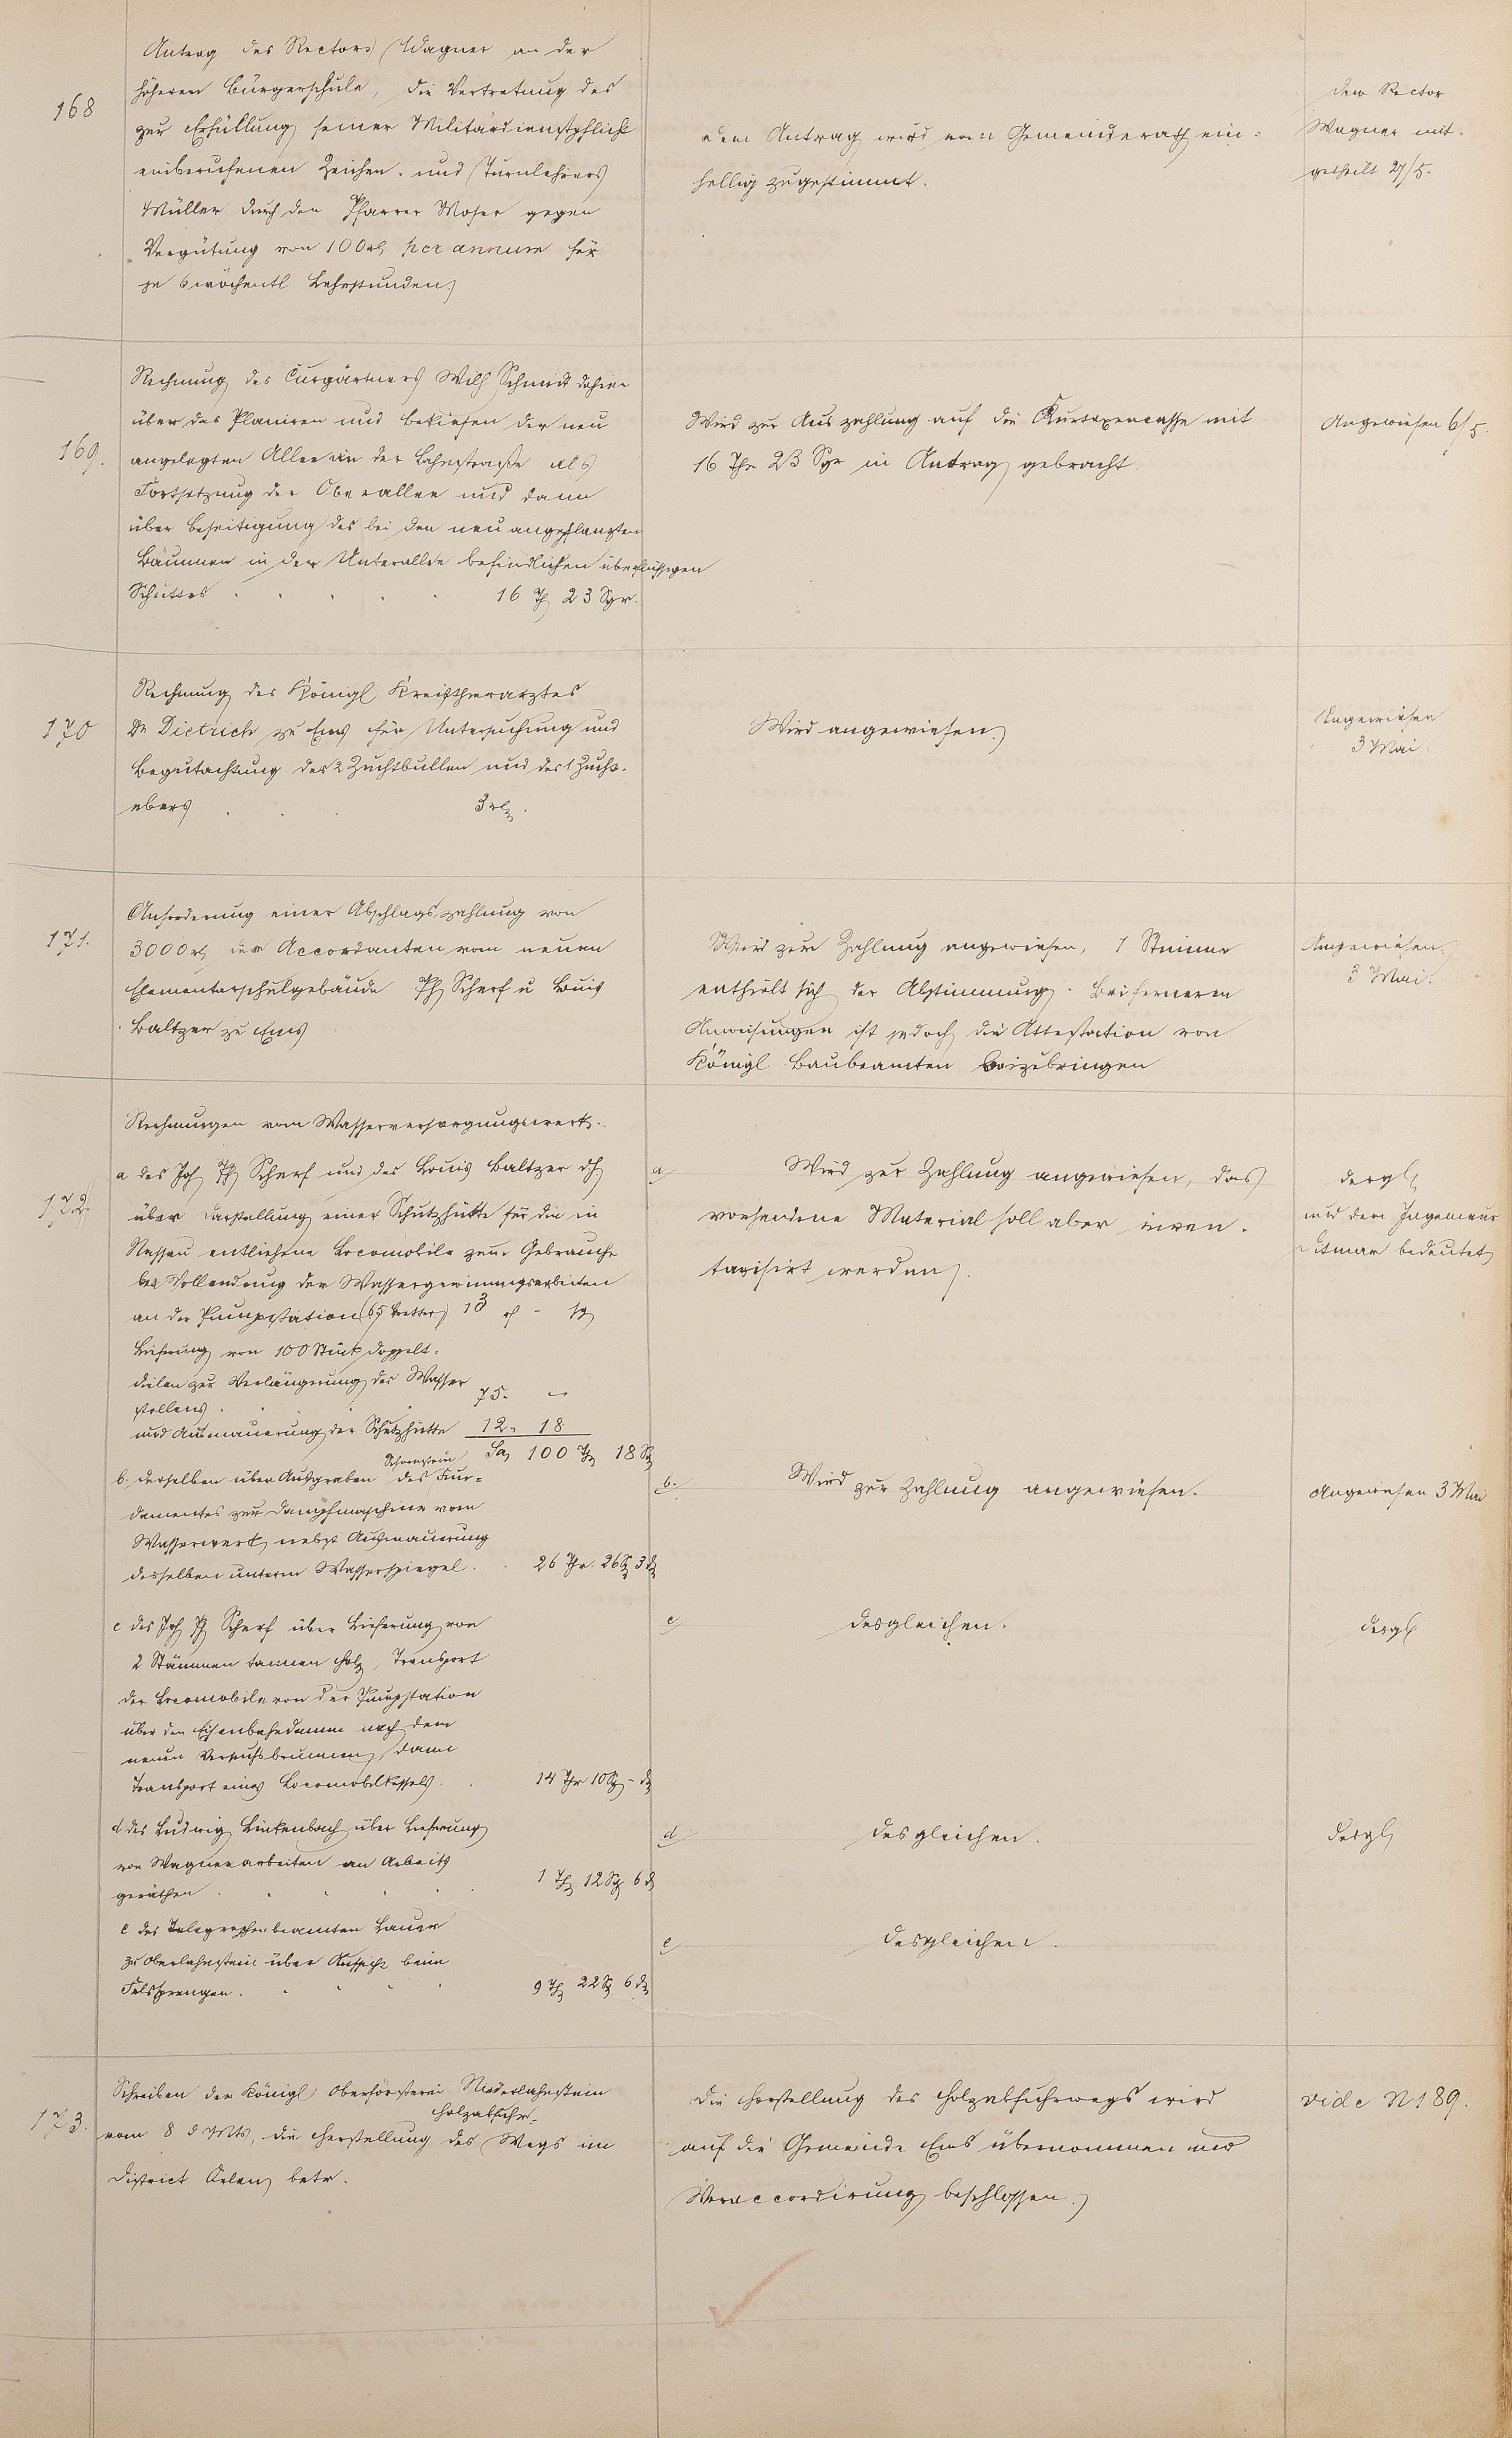 168
Antrag des Rectors Wagner an der
höheren Bürgerschule, die Vertretung des
zur Erfüllung seiner Militärdienstpflicht
einberufenen Zeichen- und Turnlehrers
Müller durch den Pfarrer Moser gegen
Vergütung von 100 rh per annum für
je 6 wöchentl Lehrstunden
dem Antrag wird vom Gemeinderath ein=
hellig zugestimmt.
dem Rector
Wagner mit=
getheilt 27/5.
169.
Rechnung des Curgärtners Wilh Schmidt dahier
über das Planiren und Bekiesen der neu
angelegten Allee in der Lahnstraße als
Fortsetzung der Oberallee und dann
über Beseitigung des bei den neu angepflanzten
Bäumen in der Unterallee befindlichen überflüssigen
Schuttes . . . . . 16 Th 23 Sgr.
Wird zur Auszahlung auf die Kurtaxencasse mit
16 Thr 23 Sgr in Antrag gebracht.
Angewiesen 6/5.
170
Rechnung des Königl Kreisthierarztes
Dr Dietrich zu Ems für Untersuchung und
Begutachtung der 2 Zuchtbullen und des 1 Zucht-
ebers . . . 3 rh.
Wird angewiesen.
Angewiesen
3 Mai.
171.
Anforderung einer Abschlagszahlung von
3000 rh der Accordanten vom neuen
Elementarschulgebäude Ph Scherf u Louis
Baltzer zu Ems
Wird zur Zahlung angewiesen, 1 Stimme
enthielt sich der Abstimmung. Bei ferneren
Anweisungen ist jedoch die Attestation von
Königl Baubeamten beizubringen
Angewiesen.
3 Mai.
172.
Rechnungen vom Wasserversorgungswerk.
a des Joh Ph Scherf und des Louis Baltzer dh
über Herstellung einer Schutzhütte für die in
Nassau entliehene Locomobile zum Gebrauche
bei Vollendung der Wassergewinnungsarbeiten
an der Pumpstation (65 Bretter) 13 rh - sg
Lieferung von 100 Stück doppelt-
dielen zur Verlängerung des Wasser
stollens . . . 75. -
und Ausmauerung der Schutzhütte 12. 18
Sa 100 Th 18 Sg
a
Wird zur Zahlung angewiesen, das
vorhandene Material soll aber inven=
tarisirt werden.
dergl
und dem Ingenieur
Ditmar bedeutet
b. derselben über Aufgraben des Fun=
Schornstein
damentes zur Dampfmaschine vom
Wasserwerk nebst Aufmauerung
desselben unterm Wasserspiegel . . 26 Thr. 26 Sg 3 d
b.
Wird zur Zahlung angewiesen.
Angewiesen 3 Mai
c des Joh Ph Scherf über Lieferung von
2 Stämmen tannen Holz, Transport
der Locomobile von der Pumpstation
über den Eisenbahndamm nach dem
neuen Versuchsbrunnen, dann
Transport eines Locomobilkessels . . 14 Thr 10 Sg - d
c
desgleichen.
desgl
d des Ludwig Linkenbach über Lieferung
von Wagnerarbeiten an Arbeits
geräthen . . . . . 1 Th 12 Sg 6 d
d
desgleichen.
desgl
e des Telegraphenbeamten Lauer
zu Oberlahnstein über Aufsicht beim
Felssprengen . . . . . 9 Th 22 Sg 6 d
e
desgleichen.
173.
Schreiben der Königl Oberförsterei Niederlahnstein
Holzabfuhr-
vom 8 d Mts, die Herstellung des Wegs im
District Erlen betr.
Die Herstellung des Holzabfuhrwegs wird
auf die Gemeinde Ems übernommen und
Veraccordirung beschlossen.
vide N 189.